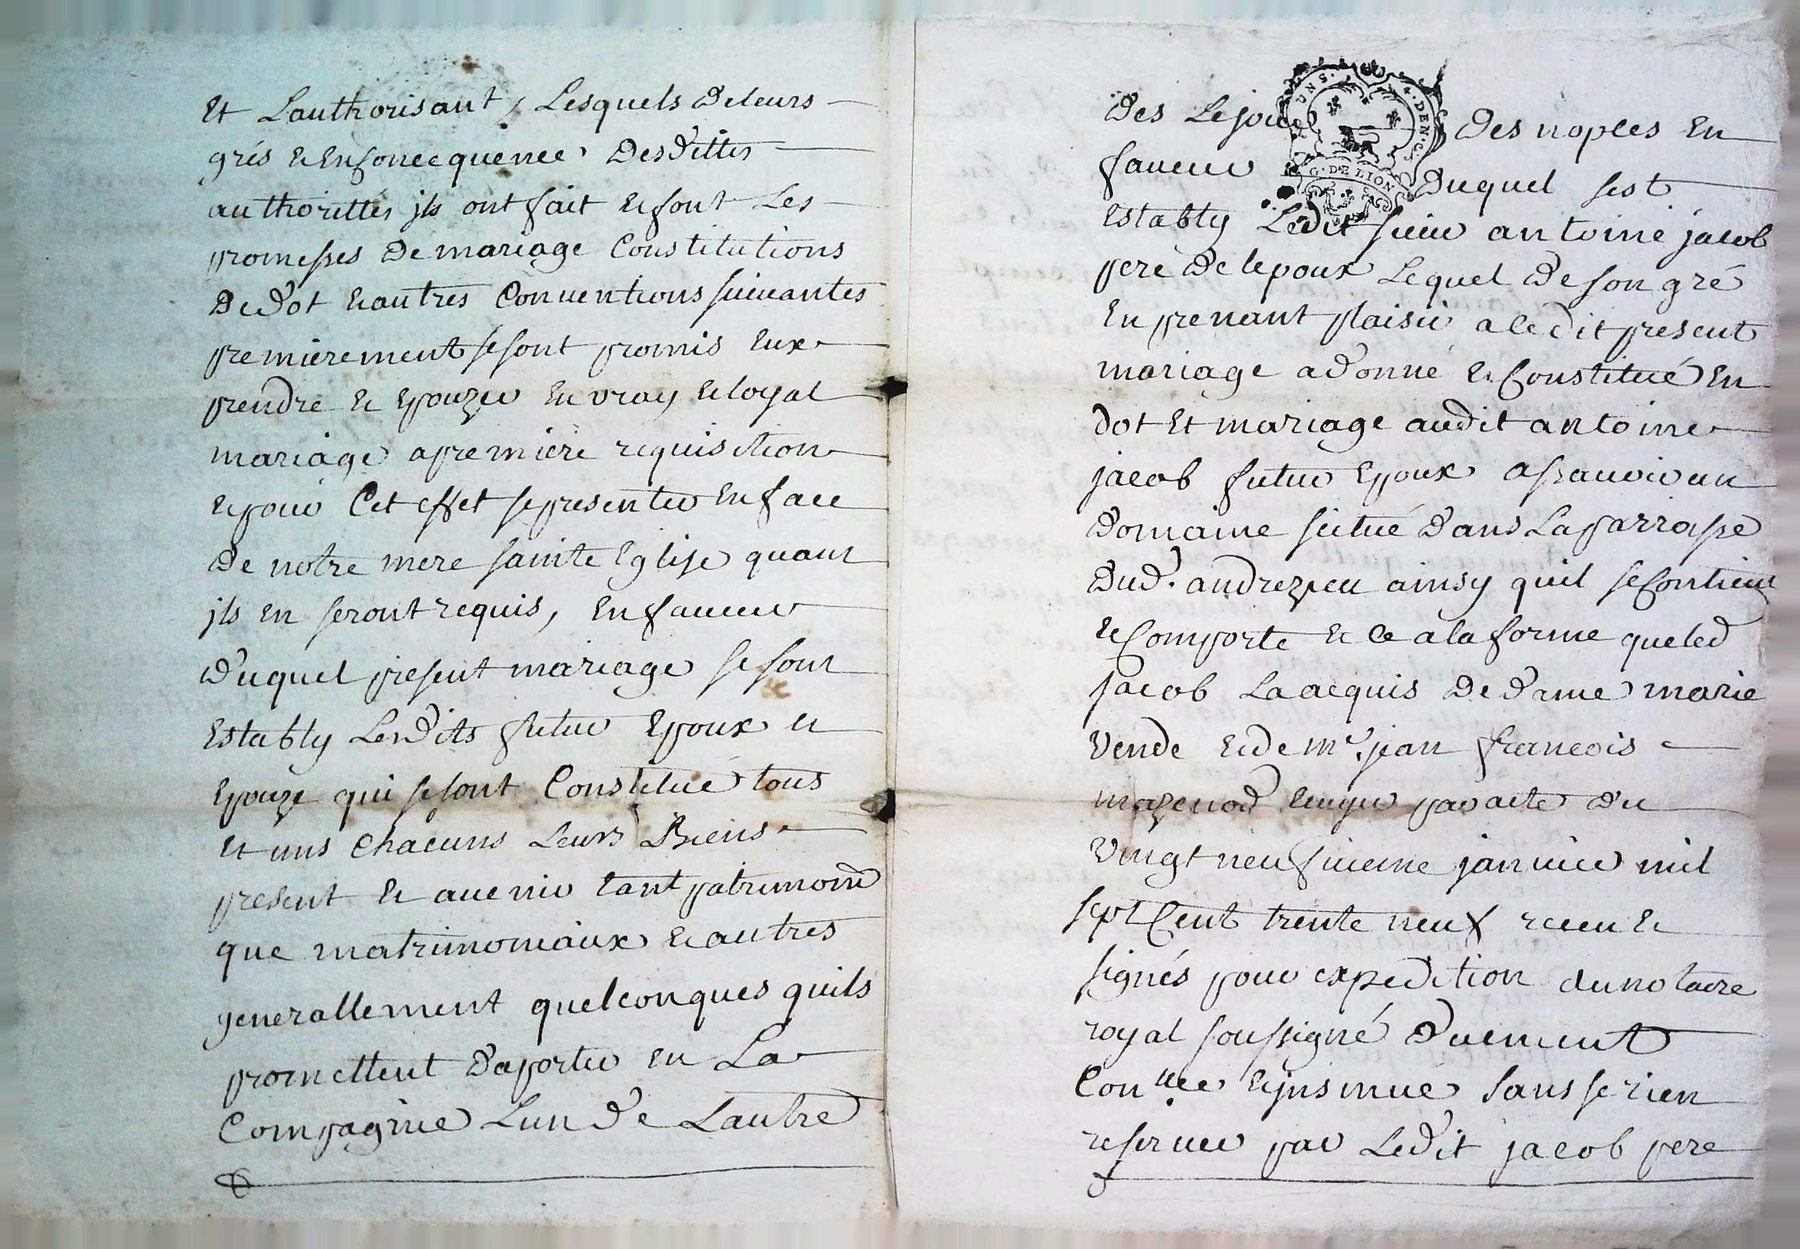 Et Lauthorisant, Lesquels de leurs
grés & En Consecquence Desdittes
authorittés jls ont fait & font Les
promesses De mariage Constitutions
De dot & autres Conventions suivantes
premierement se sont promis Eux
prendre & Epouzer En vray & loyal
mariage a premiere requisition
& pour Cet effet se presenter En face
De notre mere sainte Eglise quant
jls en seront requis, En faveur
duquel present mariage se sont
Estably Lesdits futur Epoux et
Epouze qui se sont Constitué tous
Et uns chacuns Leurs Biens
present & avenir tant patrimoni
que matrimoniaux & autres
generallement quelconques quils
promettent d'aporter en La
Compagnie Lun de Lautre
Des Le jour Des nopces En
faveur Duquel sest
Estably Ledit sieur antoine jacob
pere de lepoux Lequel de son gré
En prenant plaisir a ledit present
mariage a donné & Constitué En
dot Et mariage audit antoine
jacob futur Epoux assavoir un
domaine situé dans La parroisse
dud. andrezieu ainsy quil se Contient
& Comporte & ce a la forme que led
jacob La acquis de dame marie
Vende & de mr. jean francois
mazenod Ecuyer par acte du
Vingt neufvieme janvier mil
sept Cent trente neuf receu &
signés pour expedition du notaire
royal soussigné duement
Con.llee & jnsinué sans se rien
reserver par Ledit jacob pere
G. DE LION